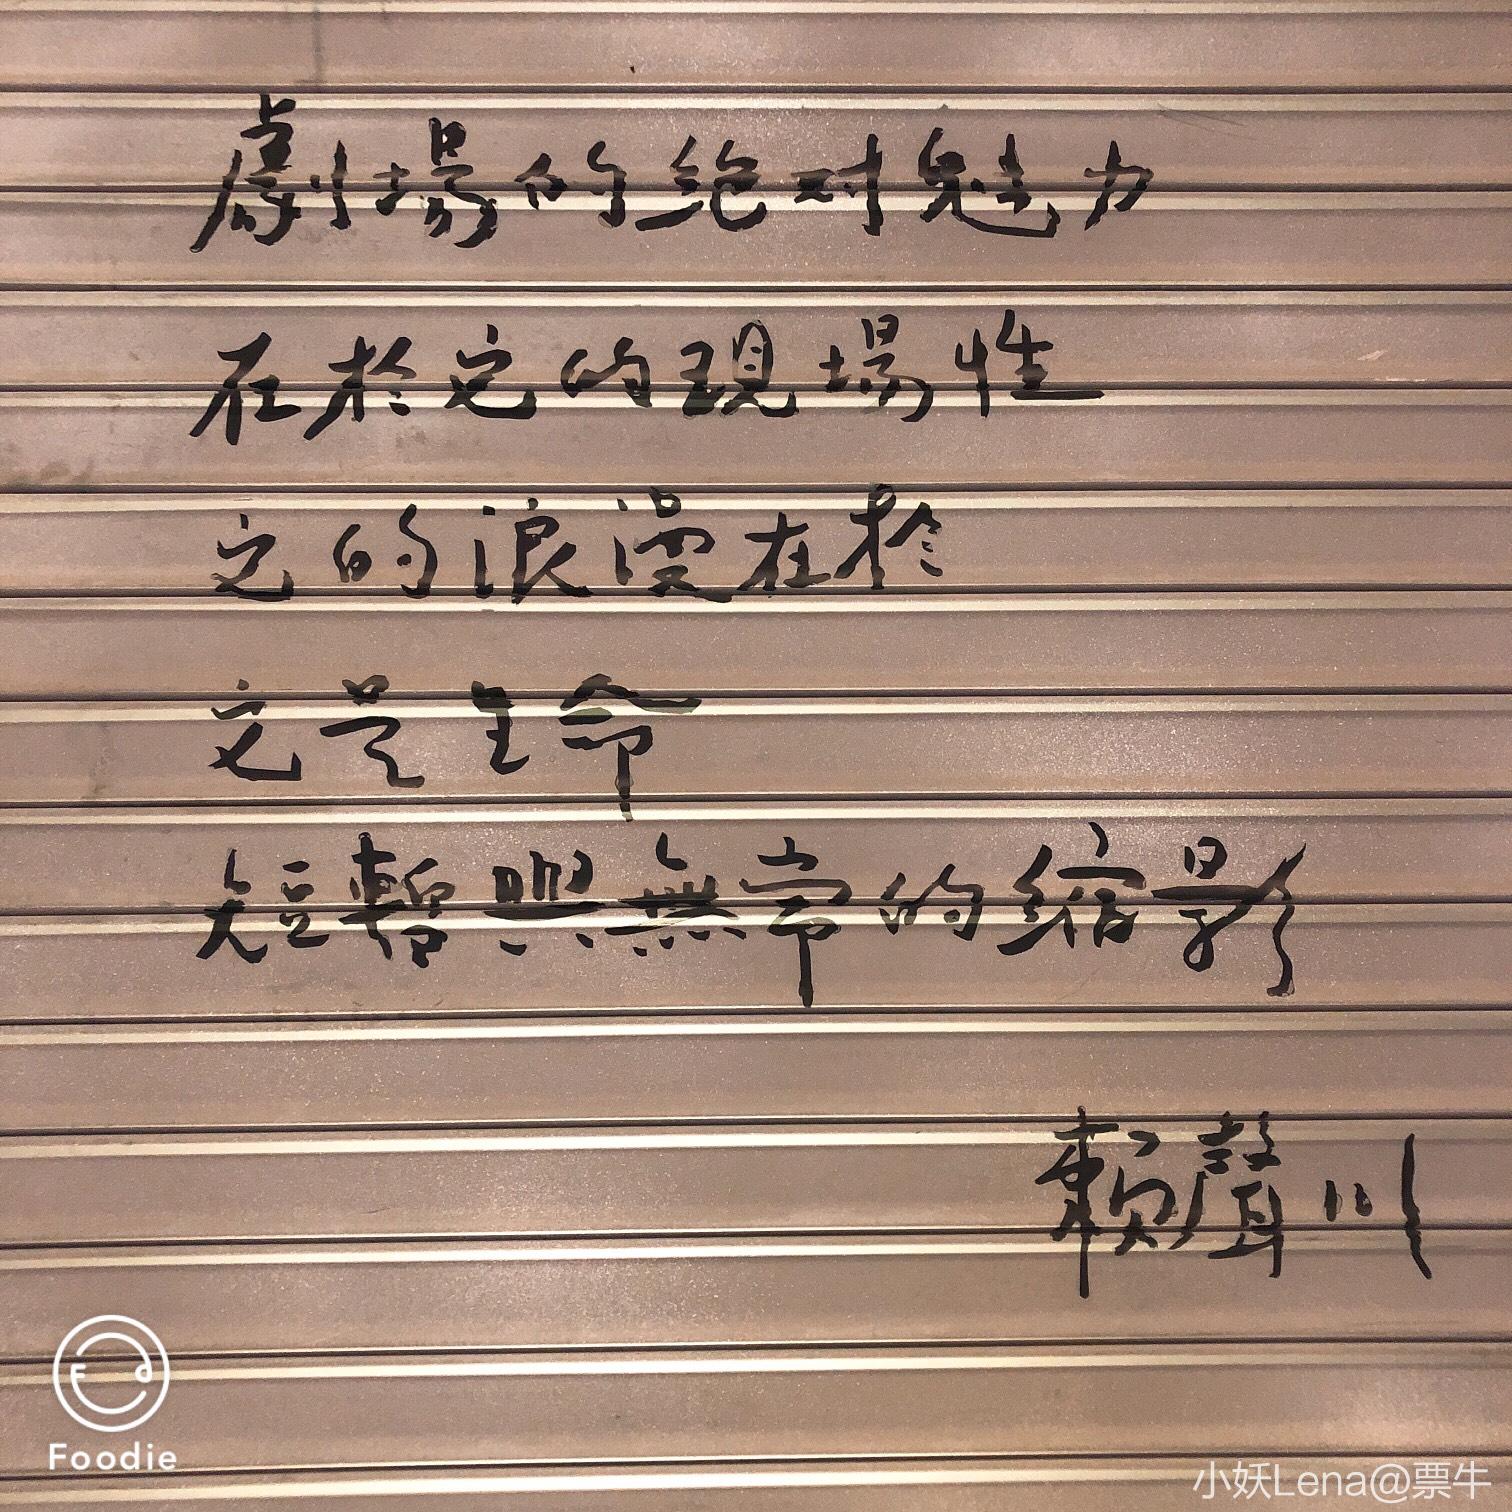 劇場的絕对魅力
在於它的現場性
它的浪漫在於
它是生命
短暫與無常的縮影
賴聲川
Foodie
小妖Lena@票牛